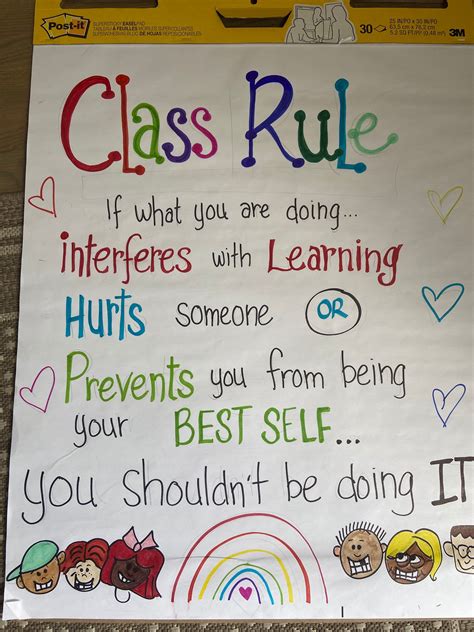 Post-it
30
25 IN/PO x 30 IN/PO
3M
Class Rule
If what you are doing...
interferes with Learning
Hurts someone OR
Prevents you from being
your BEST SELF...
you shouldn't be doing IT